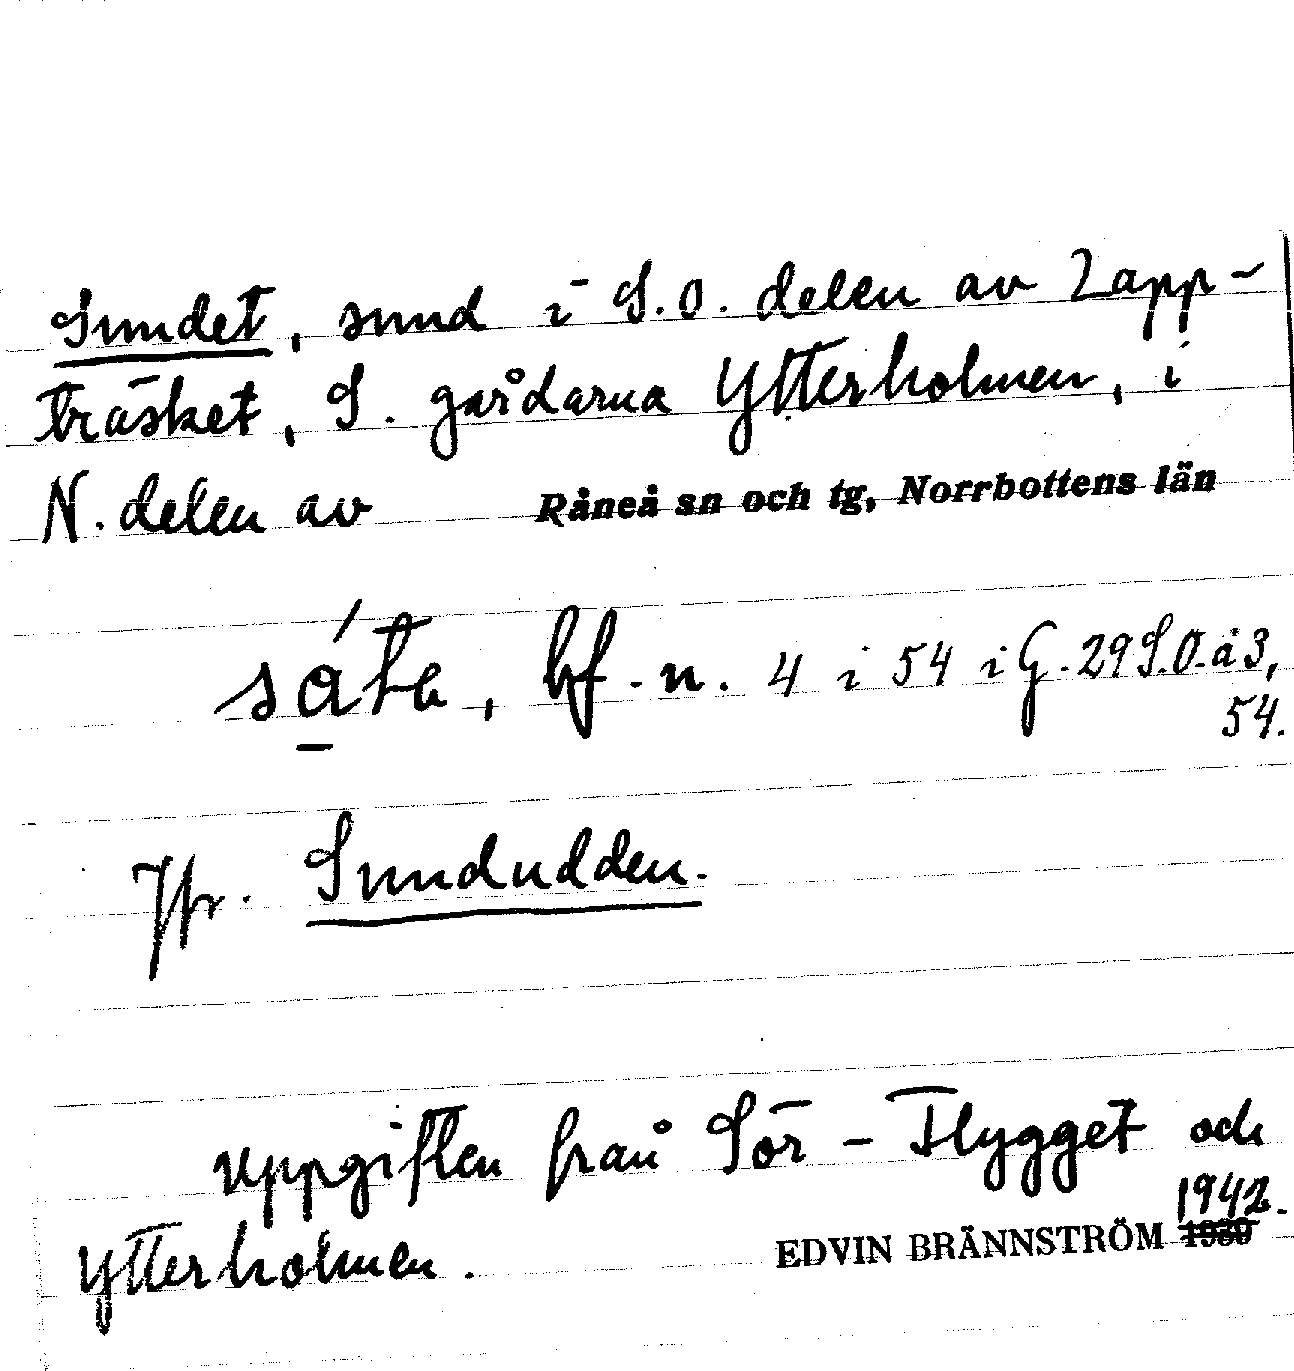 Sundet, sund i S.O. delen av Lapp-
träsket, S. gårdarna Ytterholmen, i
N. delen av Råneå sn och tg, Norrbottens län
bf. n. 4 i 54 i G. 29 S.O. å 3,
54.
Jfr. Sundudden.
uppgiften från Sör-Flygget och
Ytterholmen. EDVIN BRÄNNSTRÖM 1939 1942.